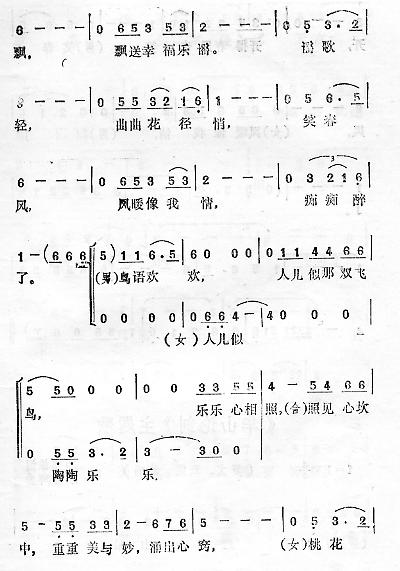 6 - - - | 0 653 53 | 2 - - - | 0 53·2
飘， 飘送幸福乐谣。 漫歌
- - - | 0 553216 | 1 - - - | 0 56·5
轻， 曲曲花径悄， 笑春
6 - - - | 0 653 53 | 2 - - - | 0 3216
风， 风暖像我情， 痴痴醉
1 - (666 | 5) 116·5 | 60 00 | 011 44 66
了。 (男)鸟语欢 欢， 人儿似那双飞
0 0 0 0 | 066 4 - | 40 00
(女)人儿似
5 50 0 0 | 0 0 33 55 | 4 - 54 66
鸟， 乐乐心相照，(合)照见心坎
0 55 3·2 | 3 - 300
陶陶乐 乐，
5 - 55 33 | 2 - 676 | 5 - - - | 0 53·2
中，重重美与妙，涌出心窍， (女)桃花